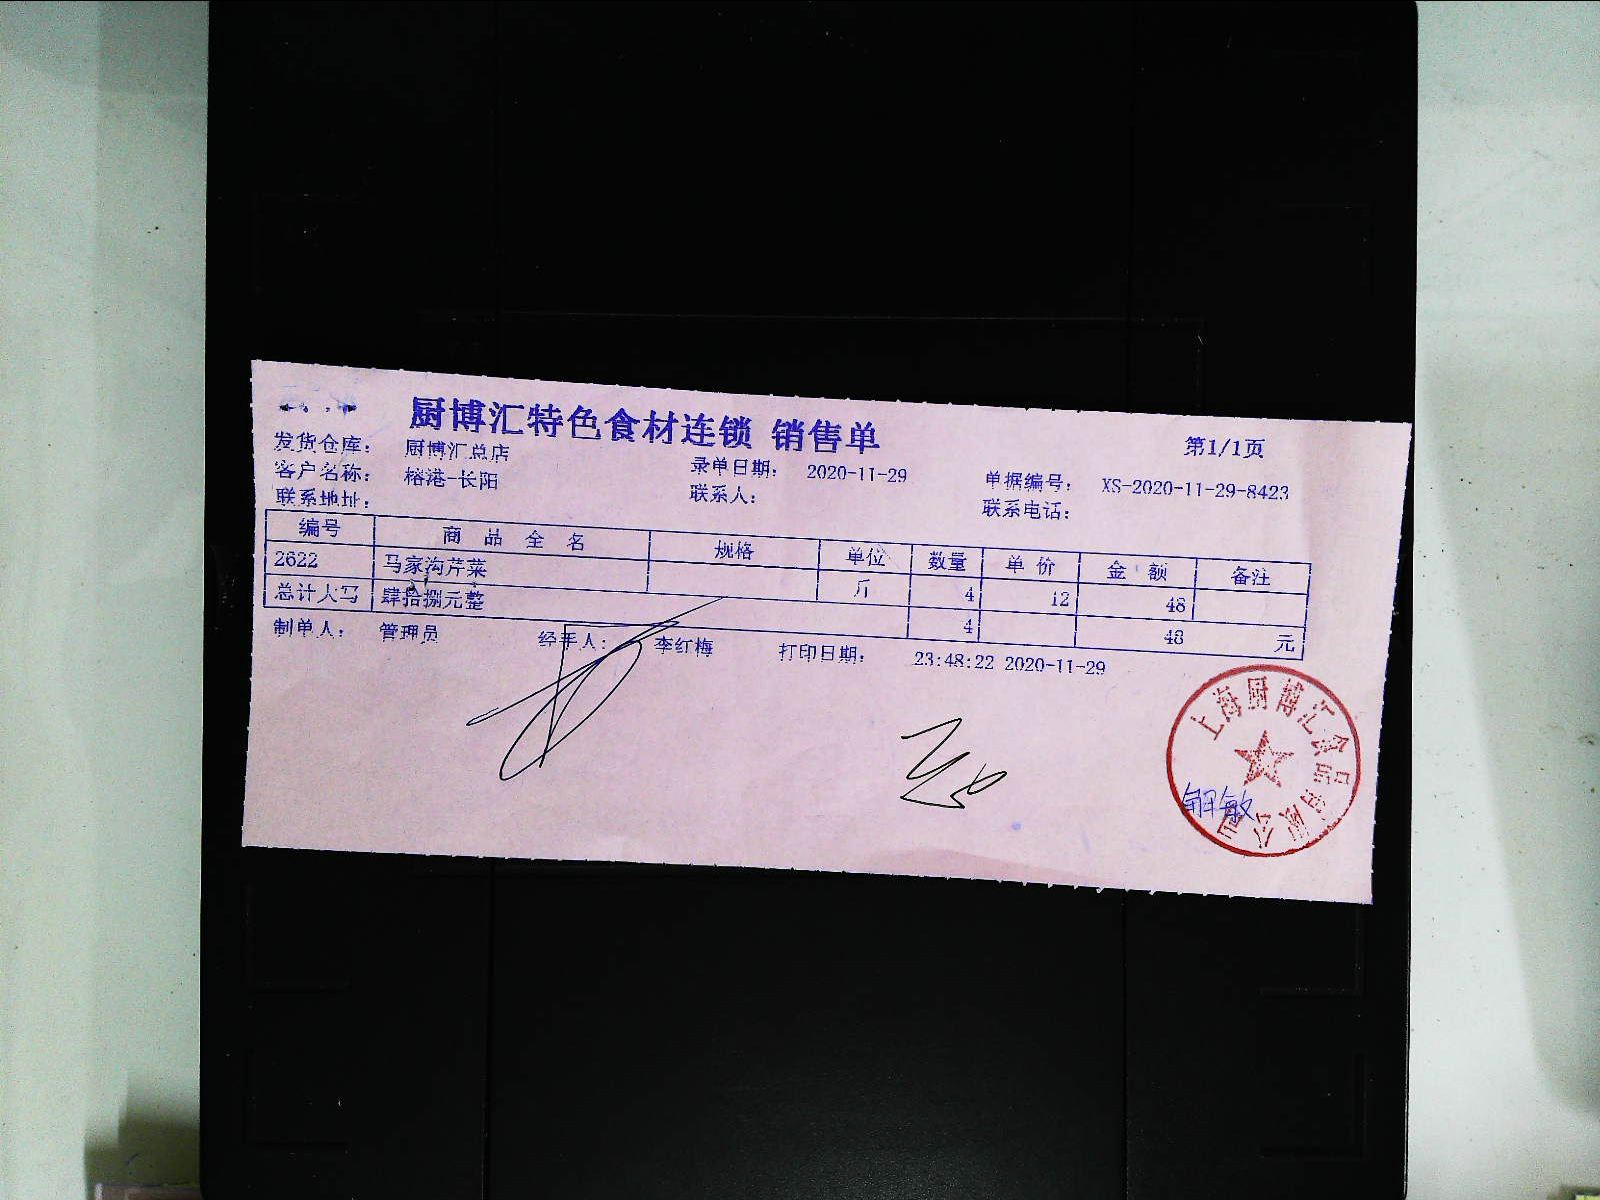 厨博汇特色食材连锁 销售单 第1/1页
发货仓库： 厨博汇总店 录单日期： 2020-11-29 单据编号： XS-2020-11-29-8423
客户名称： 榕港-长阳 联系人： 联系电话：
联系地址：
编号 商品全名 规格 单位 数量 单价 金额 备注
2622 马家沟芹菜 斤 4 12 48
总计大写 肆拾捌元整 4 48 元
制单人： 管理员 经手人： 李红梅 打印日期： 23:48:22 2020-11-29
上海厨博汇食品有限公司
解敏